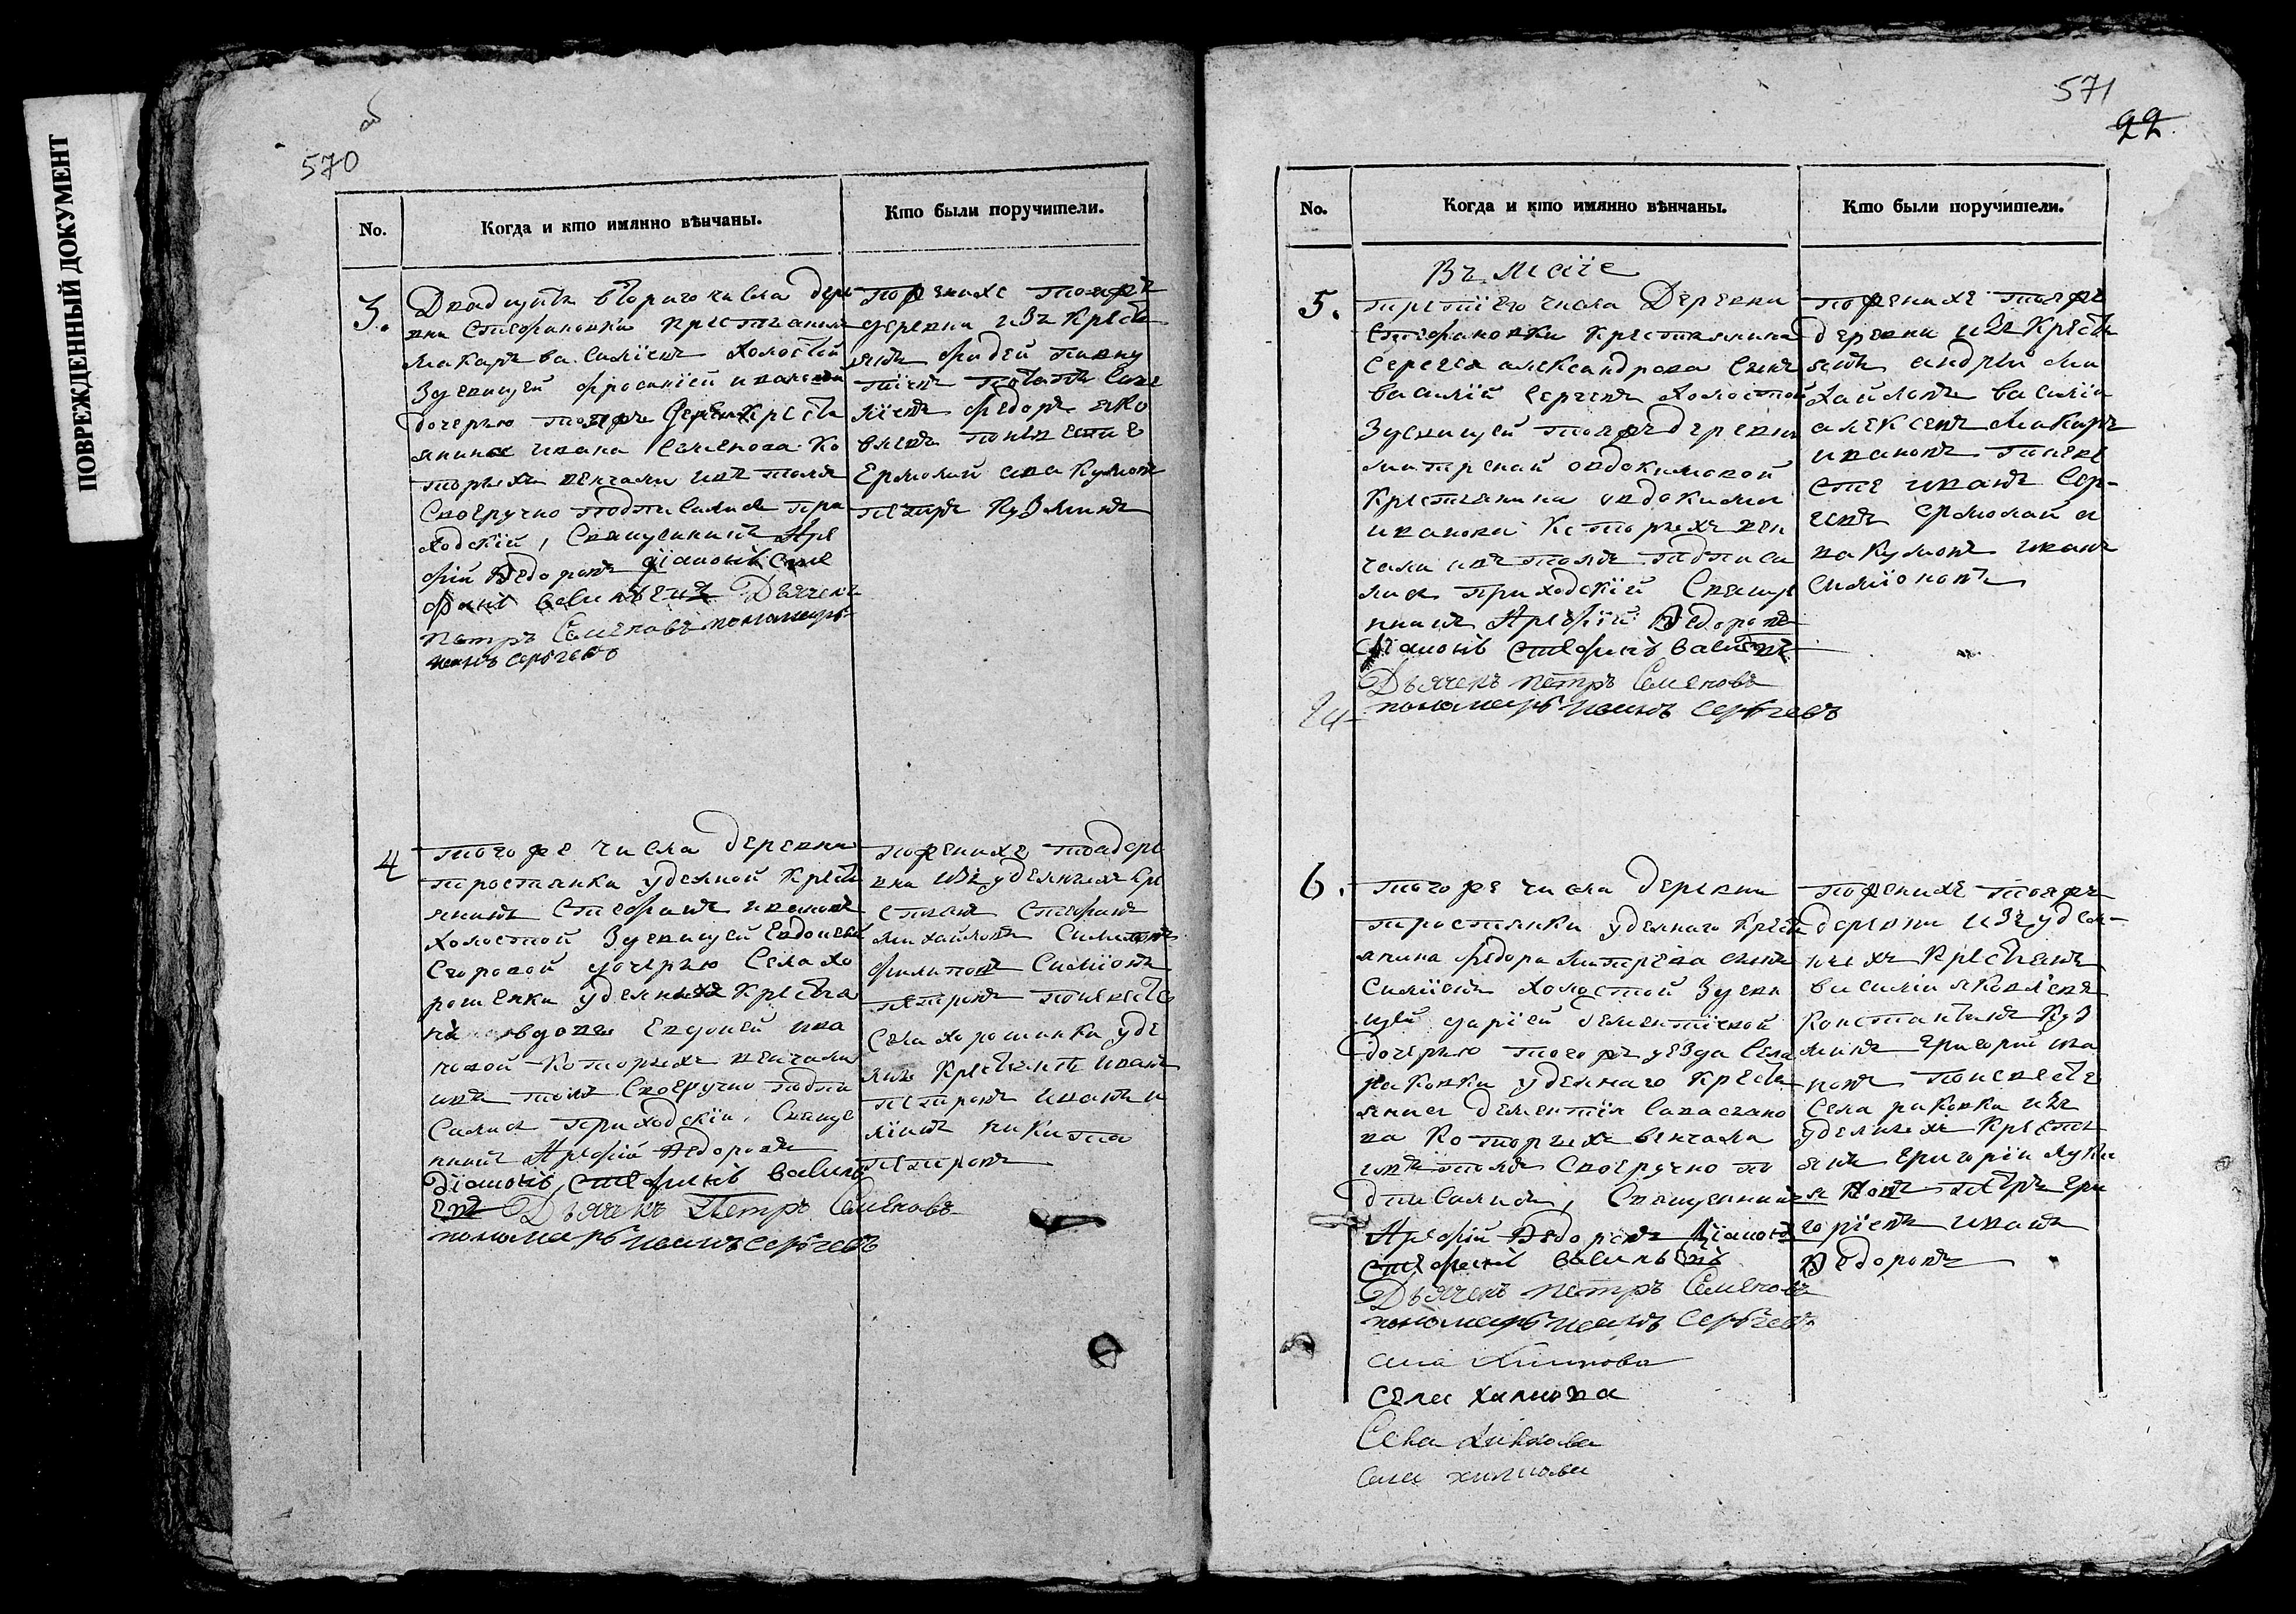 ПОВРЕЖДЕННЫЙ ДОКУМЕНТ
570
No.
Когда и кто имянно вѣнчаны.
Кто были поручители.
3.
Двадцать втораго числа дере
вни Стефановки крестьянинъ
макаръ ва силіевъ холостой
Зделицей ефросиніей ивановой
дочерью тояже деревни кресть
янина ивана Семенова ко
торыхъ венчали ивъ томъ
Своеручно подписалися при
ходскій, Священникъ Аре
фій Ѳедоровъ діаконъ сте
фанъ васильевъ Дьячекъ
Петръ Семеновъ пономарь
иванъ сергеевъ
пожениxе тояже
деревни изъ кресть
янъ фадей
Федоръ яко
влевъ поневесте
Ермолай ава кумовъ
петръ Кузминъ
4
того же числа деревни
тростянки удельной кресть
янинъ Стефанъ ивановъ
холостой Зделицей Евдокеей
Егоровой дочерью Села хо
рошенки удельныхъ крестья
вдовы Евдокеи ива
новой которыхъ венчали
ивъ томъ Своеручно подпи
салися приходскій, Свяще
нникъ Арефій Ѳедоровъ
діаконъ, стефанъ василь
евъ Дьячекъ Петръ Семеновъ
пономарь иванъ сергеевъ
пожениxе тоядере
вни изъ удельныхъ кре
стьянъ Стефанъ
михайловъ Симионъ
филиповъ Симіонъ
петровъ поневесте
Села хорошинки уде
льн крестьянъ иванъ
петровъ
никита
петровъ
571
22.
No.
Когда и кто имянно вѣнчаны.
Кто были поручители.
Въ маіе
5.
третіего числа Деревни
Стефановки крестьянина
Сергея александрова сынъ
василій Сергеевъ холостой
Зделицей тояже деревни
матреной овдокимовой
крестьянина овдокима
иванова которыхъ вен
чали ивъ томъ подписа
лися приходскій Священ
никъ Арефій Ѳедоровъ
діаконъ стефанъ васильевъ
Дьячекъ петръ Семеновъ
пономарь иванъ сергеевъ
пожениxе тояже
деревни изъ кресть
янъ андрей ми
хайловъ василій
алексеевъ макаръ
ивановъ поневе
сте иванъ Сер-
геевъ ермолай а
вакумовъ иванъ
симіоновъ
6.
того же числа деревни
тростянки удельнаго кресть
янина федора митрева сынъ
холостой Зделиц
цей дарьей дементіевой
дочерью того же уезда Села
раковки удельнаго кресть
янина дементія
ва которыхъ венчали
ивъ томъ Своеручно по
дписалися, Священникъ
Арефій Ѳедоровъ діаконъ
стефанъ васильевъ
Дьячекъ петръ Семеновъ
пономарь иванъ сергеевъ
пожениxе тояже
деревни изъ удель-
ныхъ крестьянъ
василій яковлевъ
Константинъ Куз
минъ григорій ива
новъ поневесте
Села раковки изъ
удельныхъ кресть
янъ григорій луки
яновъ петръ гри
горіевъ иванъ
Ѳедоровъ
села хилкова
Села хилкова
Села хилкова
села хилкова